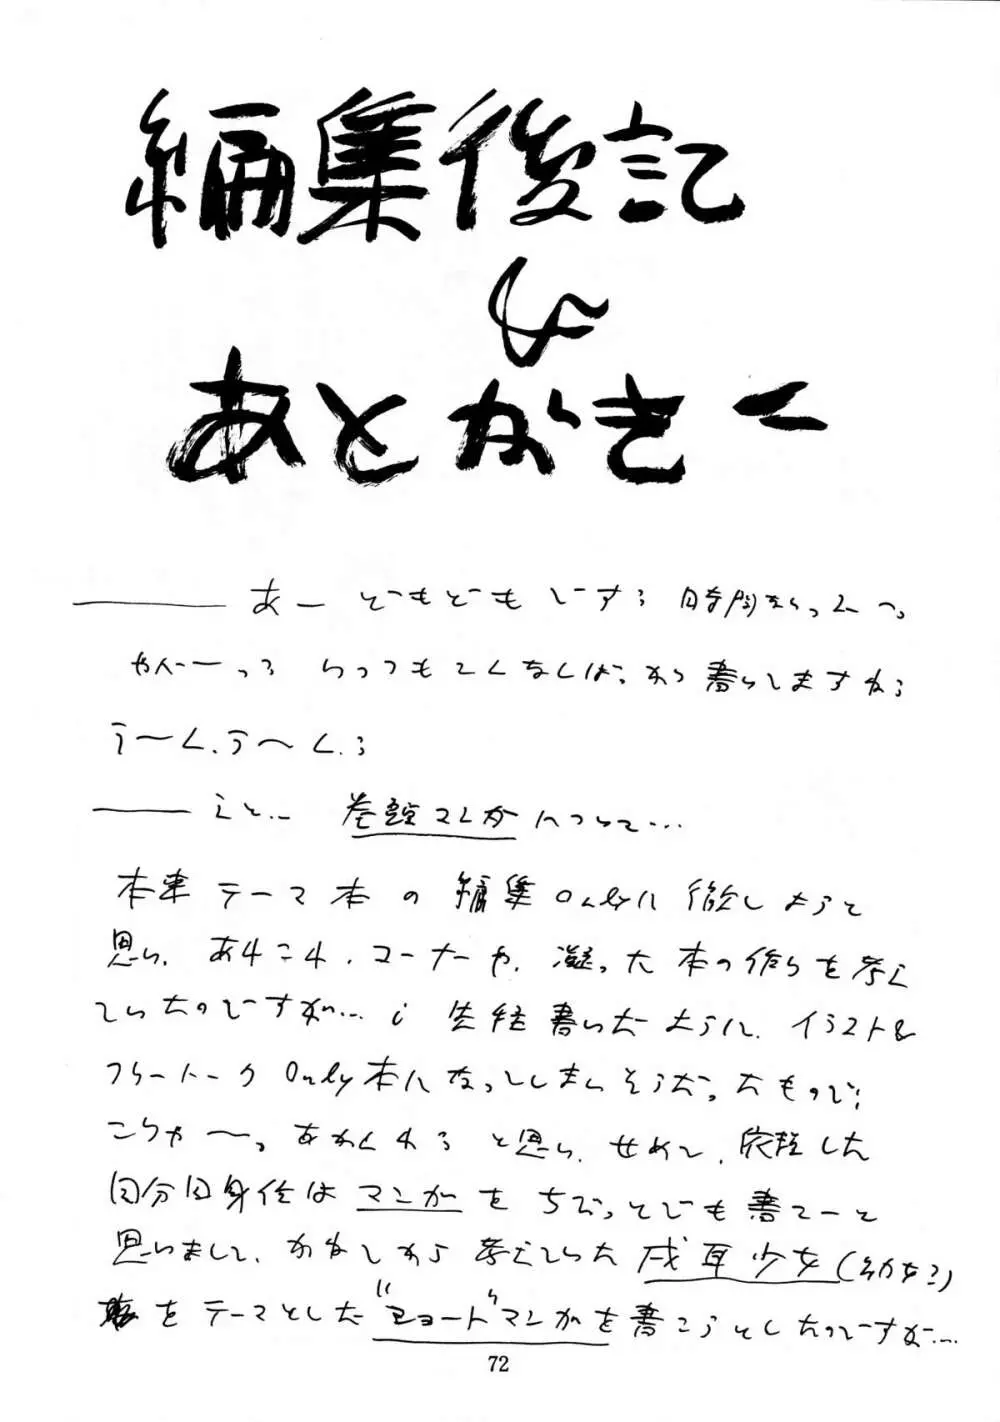 編集後記
&
あとがきー
あー どーもどーもでーす 時間
書いてますか
うーん、うーん
えと… 巻頭マンガについて…
本来テーマ本の編集Onlyに徹しようと
思い、あれこれ、コーナーや、凝った本の作りを考え
ていたのですが… 先程書いたように、イラスト&
フリートークOnly本になってしまいそうだったもので
こりゃ〜。あかんわ と思い、せめて、依頼した
自分自身位はマンガをちょっとでも書こーと
思いまして、かねてから考えていた戌耳少女(幼女?)
をテーマとした"ショート"マンガを書こうとしたのですが…
72